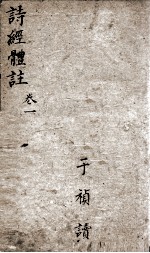 詩經體註
卷一
于禎讀